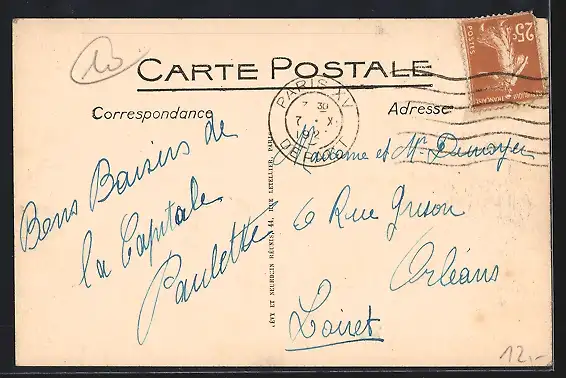 10
CARTE POSTALE
Correspondance
Adresse
25c
POSTES
PARIS XV
7 30
7 · X
192
DEPART
Bons Baisers de
la Capitale
Paulette
LÉVY ET NEURDEIN RÉUNIS, 44, RUE LETELLIER, PARIS
Madame et Mr
6 Rue
Orléans
Loiret
12,-